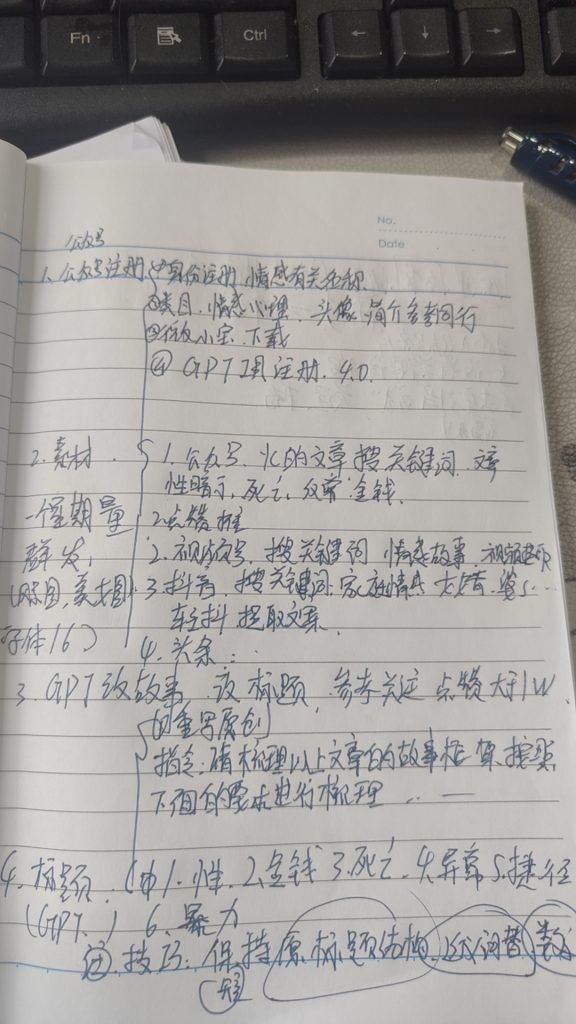 Fn
Ctrl
← ↓ →
No.
Date
公众号
1. 公众号注册 ①身份注册 情感有关名称
②类目. 情感心理. 头像 简介参考同行
下载
④ GPT 注册. 4.0.
2. 素材
1. 公众号. 的文章 搜关键词
性暗示, 死亡, 金钱.
一个星期量
2 点赞 推
群发,
2. 视频号. 搜关键词 情感故事
3. 抖音. 搜关键词. 家庭情感
字体16)
轻抖 提取文案.
4. 头条...
3. GPT改故事. 改标题. 参考关注 点赞大于1W
的重写原创
指令: 请梳理以上文章的故事框架. 按照
下面的要求进行梳理 ... —
4. 标题. 1. 性. 2. 金钱 3. 死亡. 4. 异常 5. 捷径
(GPT.) 6. 暴力
技巧: 保持原标题结构.